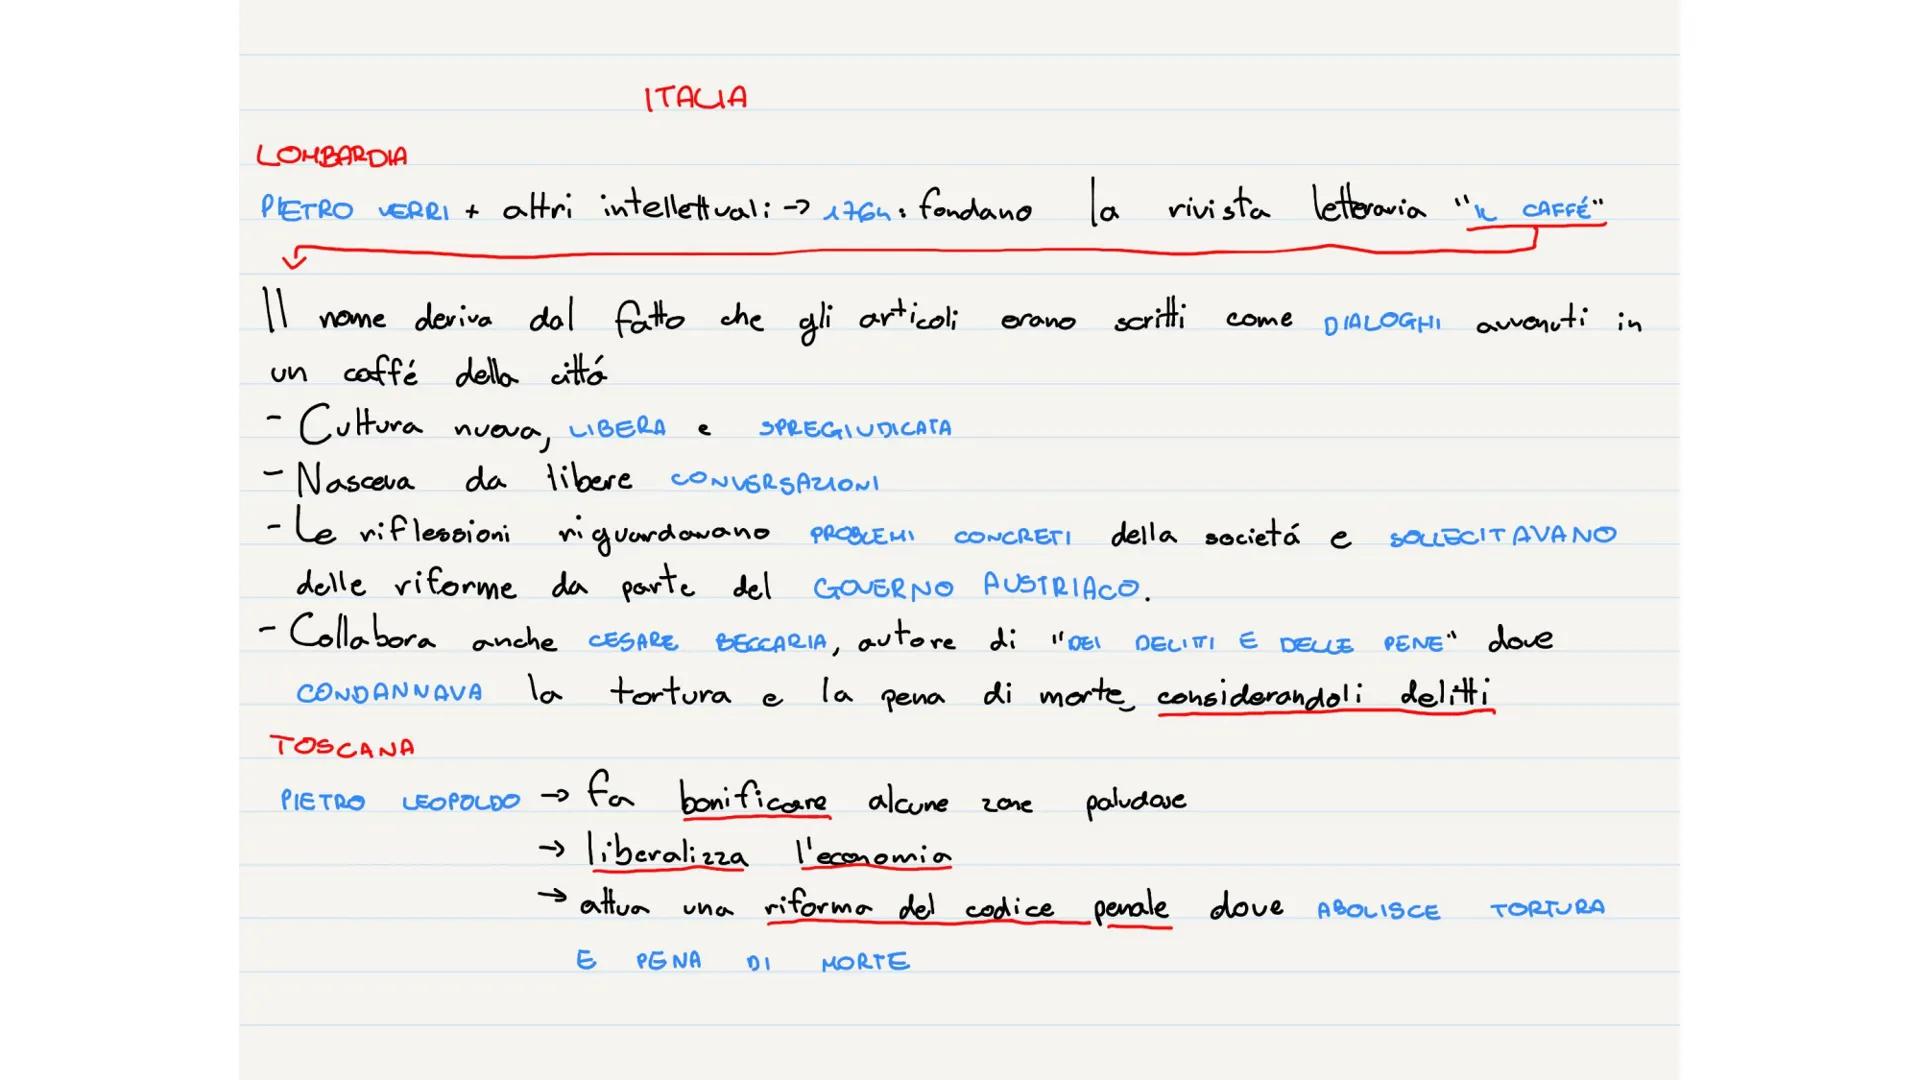 ITALIA
LOMBARDIA
PIETRO VERRI + altri intellettuali: → 1764: fondano la rivista letteraria "IL CAFFÉ"
Il nome deriva dal fatto che gli articoli erano scritti come DIALOGHI avvenuti in
un caffé della cittá
- Cultura nuova, LIBERA e SPREGIUDICATA
- Nasceva da libere CONVERSAZIONI
- Le riflessioni riguardavano PROBLEMI CONCRETI della societá e SOLLECITAVANO
delle riforme da parte del GOVERNO AUSTRIACO.
- Collabora anche CESARE BECCARIA, autore di "DEI DELITTI E DELLE PENE" dove
CONDANNAVA la tortura e la pena di morte, considerandoli delitti
TOSCANA
PIETRO LEOPOLDO → fa bonificare alcune zone paludose
→ liberalizza l'economia
→ attua una riforma del codice penale dove ABOLISCE TORTURA
E PENA DI MORTE